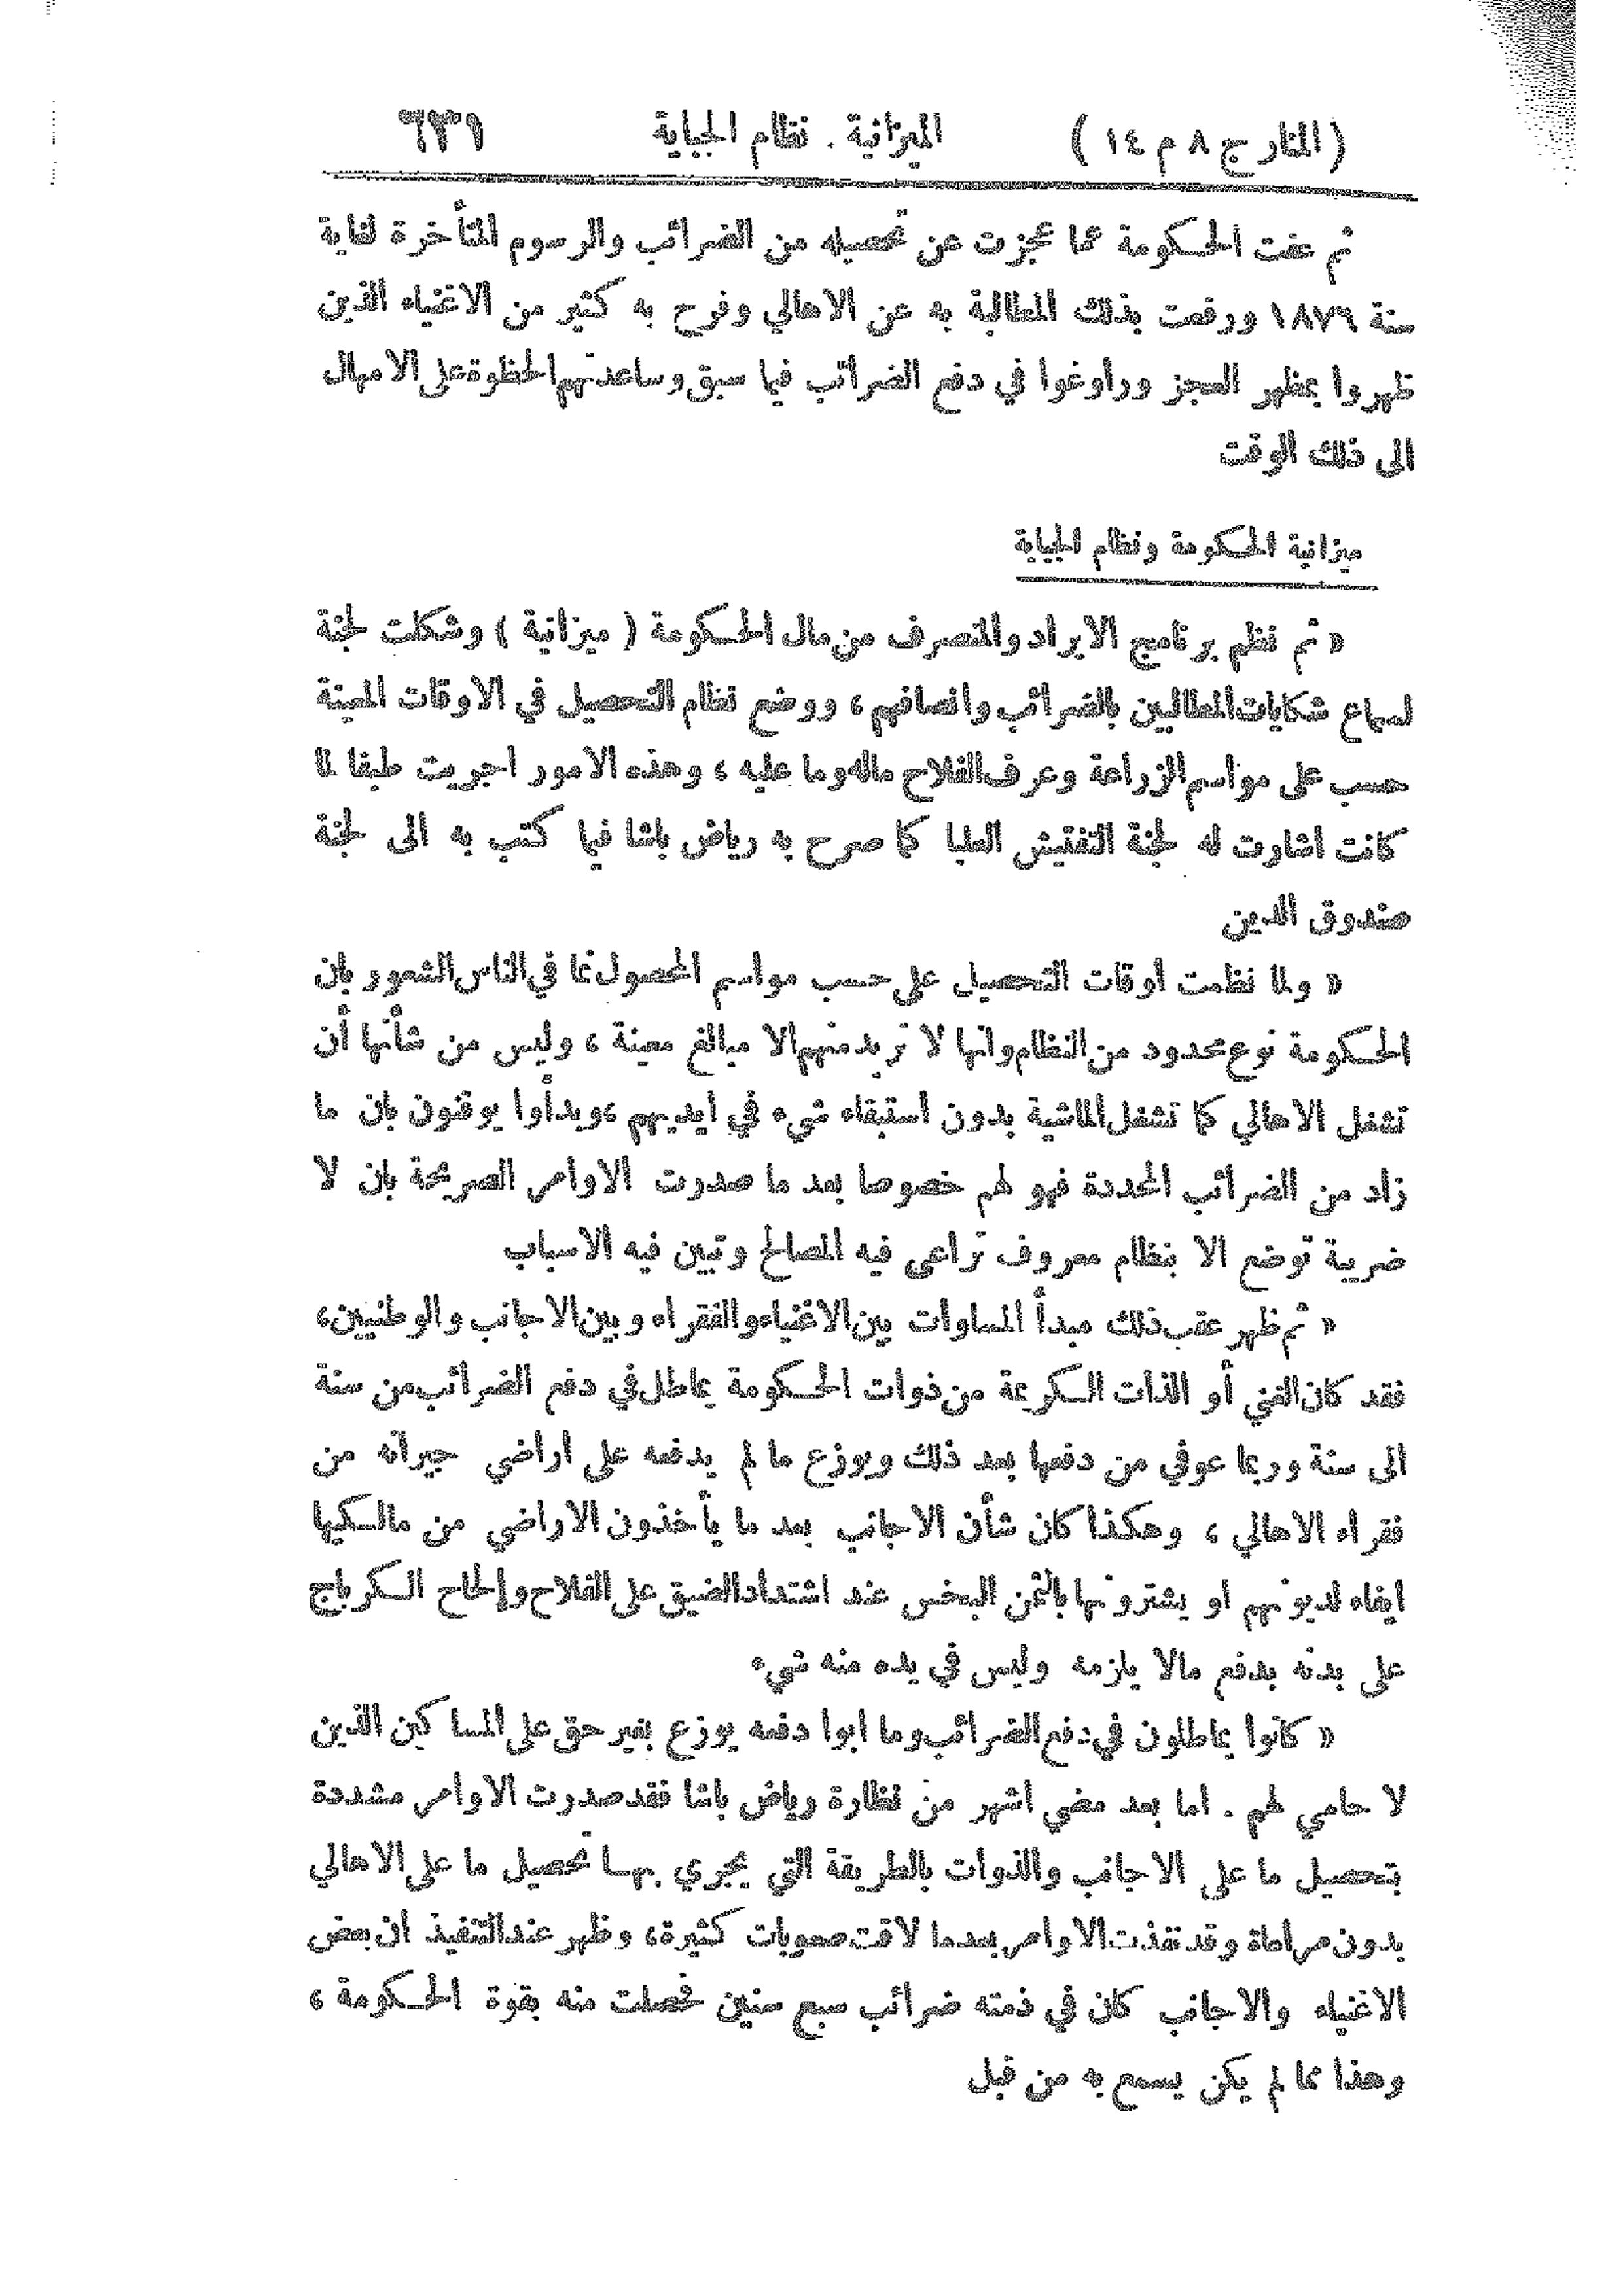 (المنار ج ٨ م ١٤) الميزانية . نظام الجباية ٦٣٩
ثم عفت الحكومة عما عجزت عن تحصيله من الضرائب والرسوم المتأخرة لغاية
سنة ١٨٧٦ ورفعت بذلك المطالبة به عن الاهالي وفرح به كثير من الاغنياء الذين
ظهروا بمظهر العجز وراوغوا في دفع الضرائب فيما سبق وساعدتهم الحظوة على الامهال
الى ذلك الوقت
ميزانية الحكومة ونظام الجباية
« ثم نظم برنامج الايراد والمنصرف من مال الحكومة ( ميزانية ) وشكلت لجنة
لسماع شكايات المطالبين بالضرائب وانصافهم ، ووضع نظام التحصيل في الاوقات المعينة
حسب على مواسم الزراعة وعرف الفلاح ماله وما عليه ، وهذه الامور اجريت طبقا لما
كانت اشارت له لجنة التفتيش العليا كما صرح به رياض باشا فيما كتب به الى لجنة
صندوق الدين
« ولما نظمت اوقات التحصيل على حسب مواسم المحصول نما في الناس الشعور بان
الحكومة نوع محدود من النظام وانها لا تريد منهم الا مبالغ معينة ، وليس من شأنها أن
تشغل الاهالي كما تشغل الماشية بدون استبقاء شيء في ايديهم ، وبدأوا يوقنون بان ما
زاد من الضرائب المحددة فهو لهم خصوصا بعد ما صدرت الاوامر الصريحة بان لا
ضريبة توضع الا بنظام معروف تراعى فيه المصالح وتبين فيه الاسباب
« ثم ظهر عقب ذلك مبدأ المساوات بين الاغنياء والفقراء وبين الاجانب والوطنيين،
فقد كان الغني أو الذات الكريمة من ذوات الحكومة يماطل في دفع الضرائب من سنة
الى سنة وربما عوفي من دفعها بعد ذلك ويوزع ما لم يدفعه على اراضي جيرانه من
فقراء الاهالي ، وهكذا كان شأن الاجانب بعد ما يأخذون الاراضي من مالكيها
ايفاء لديونهم او يشترونها بالثمن البخس عند اشتداد الضيق على الفلاح وإلحاح الكرباج
على بدنه بدفع مالا يلزمه وليس في يده منه شيء
« كانوا يماطلون في دفع الضرائب وما ابوا دفعه يوزع بغير حق على المساكين الذين
لا حامي لهم . اما بعد مضي اشهر من نظارة رياض باشا فقد صدرت الاوامر مشددة
بتحصيل ما على الاجانب والذوات بالطريقة التي يجري بها تحصيل ما على الاهالي
بدون مراعاة وقد نفذت الاوامر بعدما لاقت صعوبات كثيرة، وظهر عند التنفيذ ان بعض
الاغنياء والاجانب كان في ذمته ضرائب سبع سنين فحصلت منه بقوة الحكومة ،
وهذا مما لم يكن يسمع به من قبل